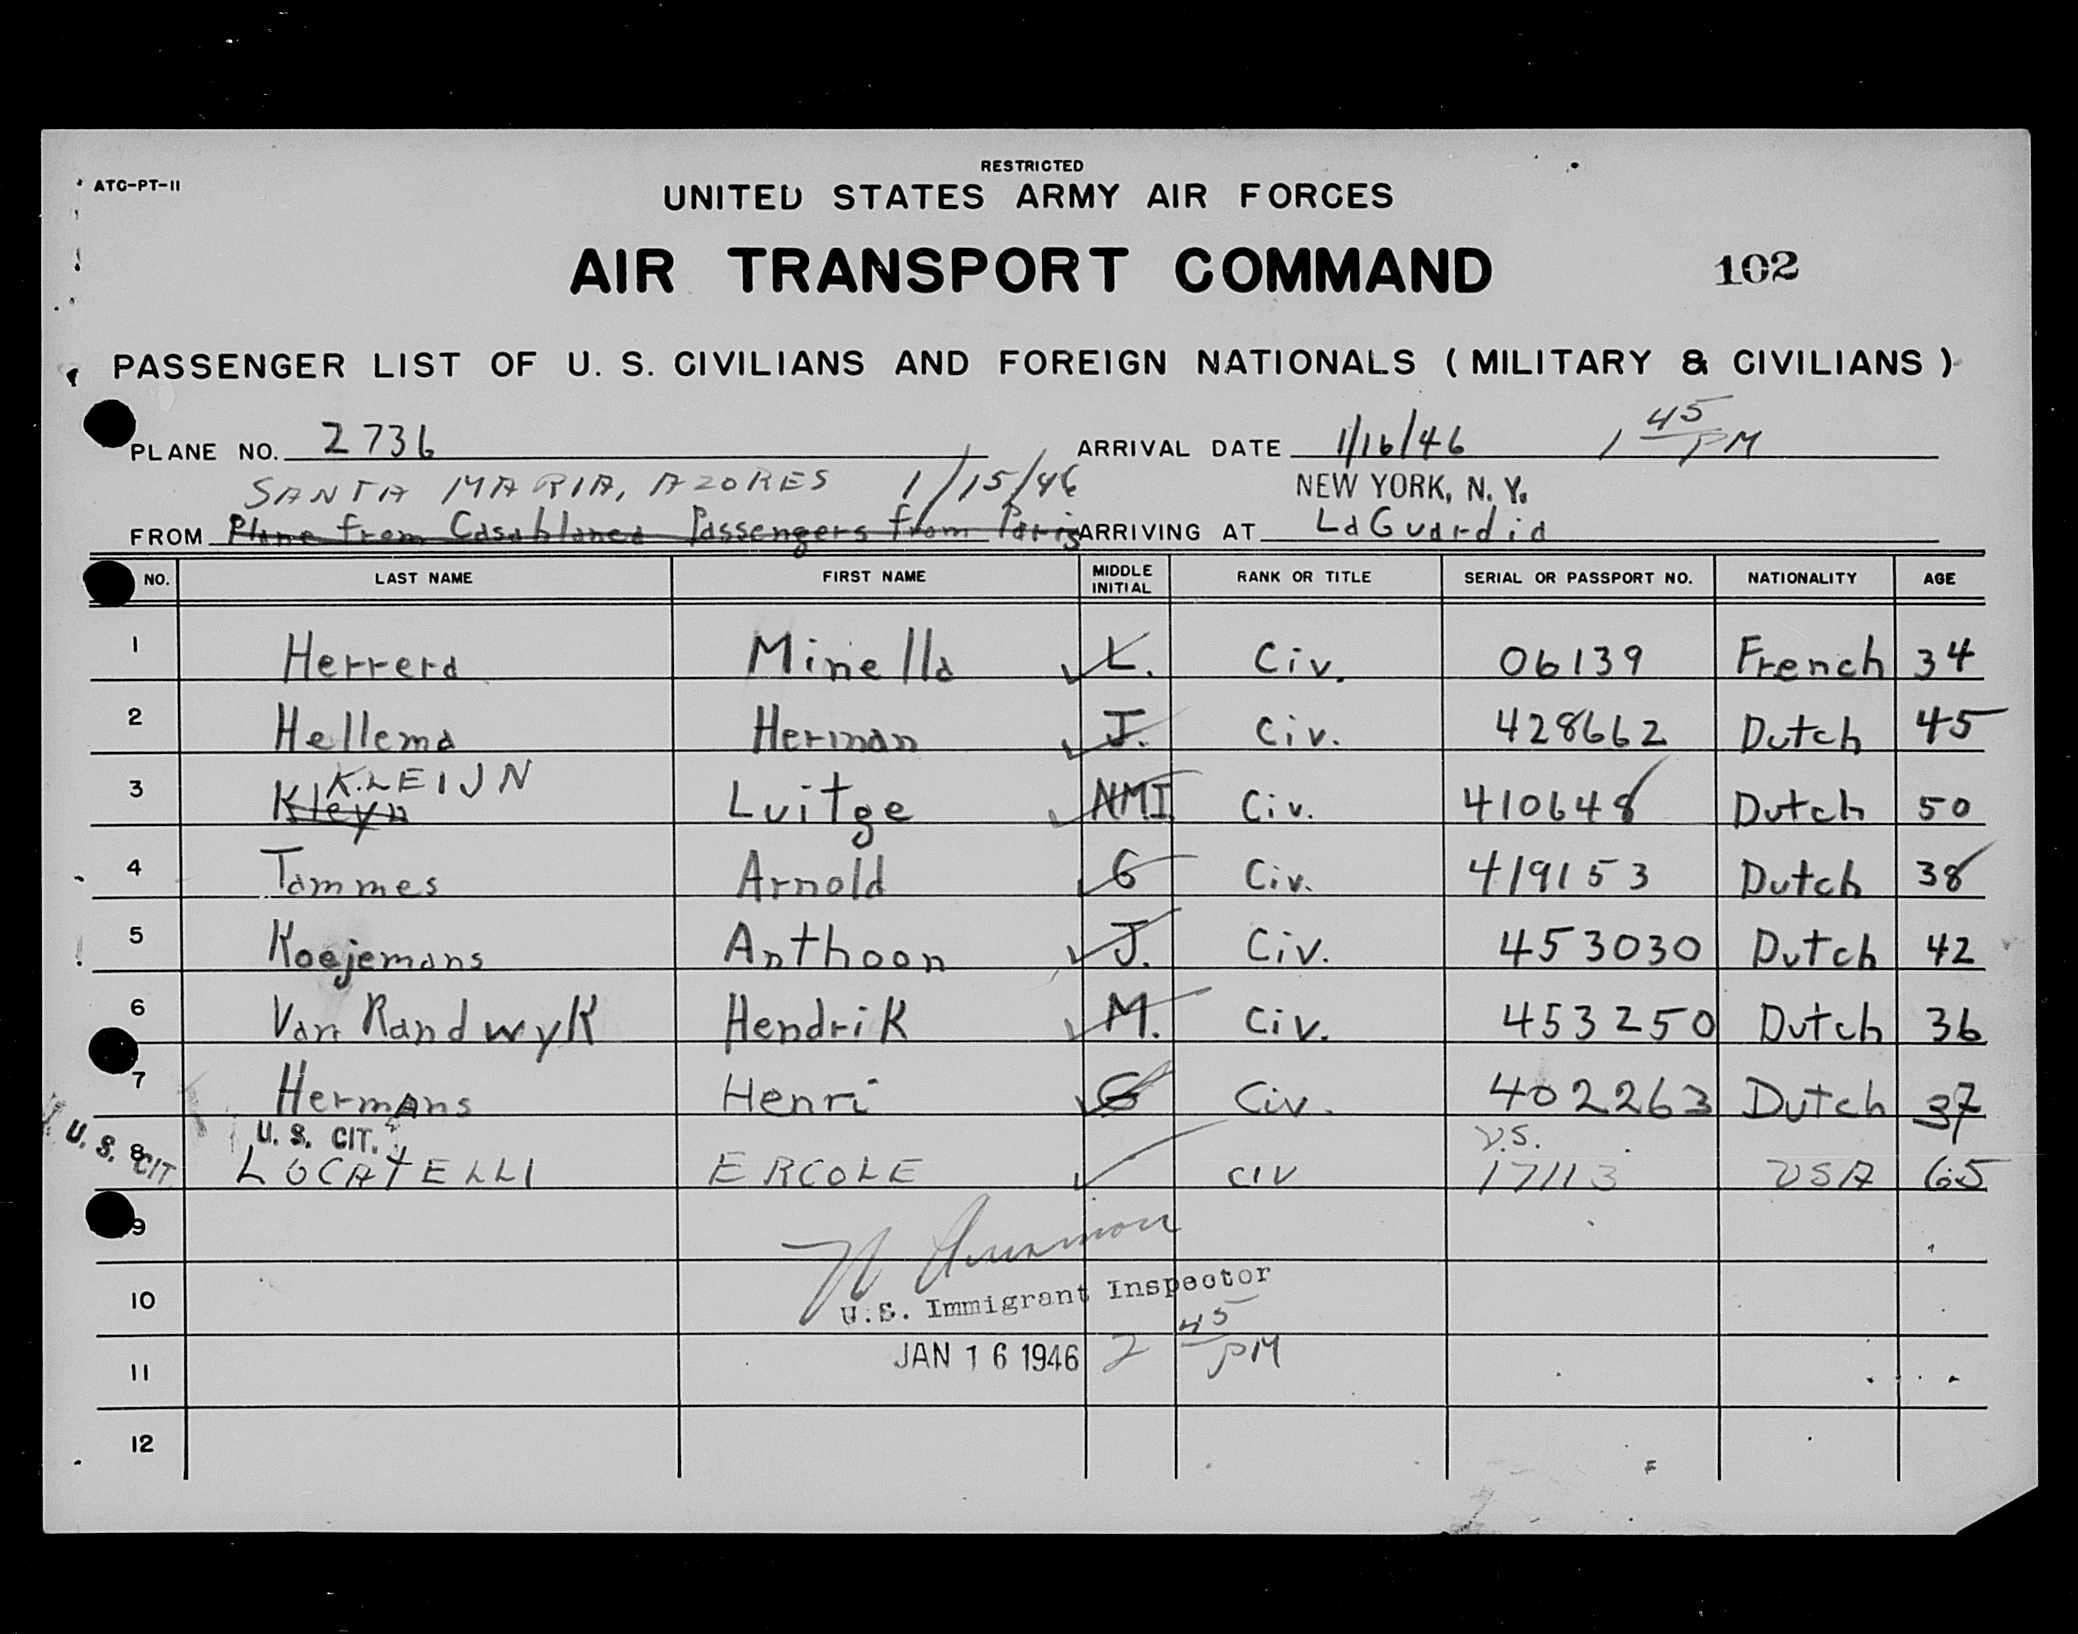 RESTRICTED
ATC-PT-11
UNITED STATES ARMY AIR FORCES
AIR TRANSPORT COMMAND 102
PASSENGER LIST OF U. S. CIVILIANS AND FOREIGN NATIONALS ( MILITARY & CIVILIANS )
PLANE NO. 2736 ARRIVAL DATE 1/16/46 1 45 PM
SANTA MARIA, AZORES 1/15/46 NEW YORK, N. Y.
FROM Plane from Casablanca Passengers from Paris ARRIVING AT LaGuardia
NO. LAST NAME FIRST NAME MIDDLE INITIAL RANK OR TITLE SERIAL OR PASSPORT NO. NATIONALITY AGE
1 Herrera Minella L. Civ. 06139 French 34
2 Hellema Herman J. Civ. 428662 Dutch 45
KLEIJN
3 Kleyn Luitge NMI Civ. 410648 Dutch 50
4 Tammes Arnold G Civ. 419153 Dutch 38
5 Koejemans Anthoon J. Civ. 453030 Dutch 42
6 Van Randwyk Hendrik M. Civ. 453250 Dutch 36
7 Hermans Henri G Civ. 402263 Dutch 37
U. S. CIT. U. S. CIT. V.S.
8 LOCATELLI ERCOLE CIV 17113 USA 65
9
10 U.S. Immigrant Inspector
11 JAN 16 1946 2 45 PM
12